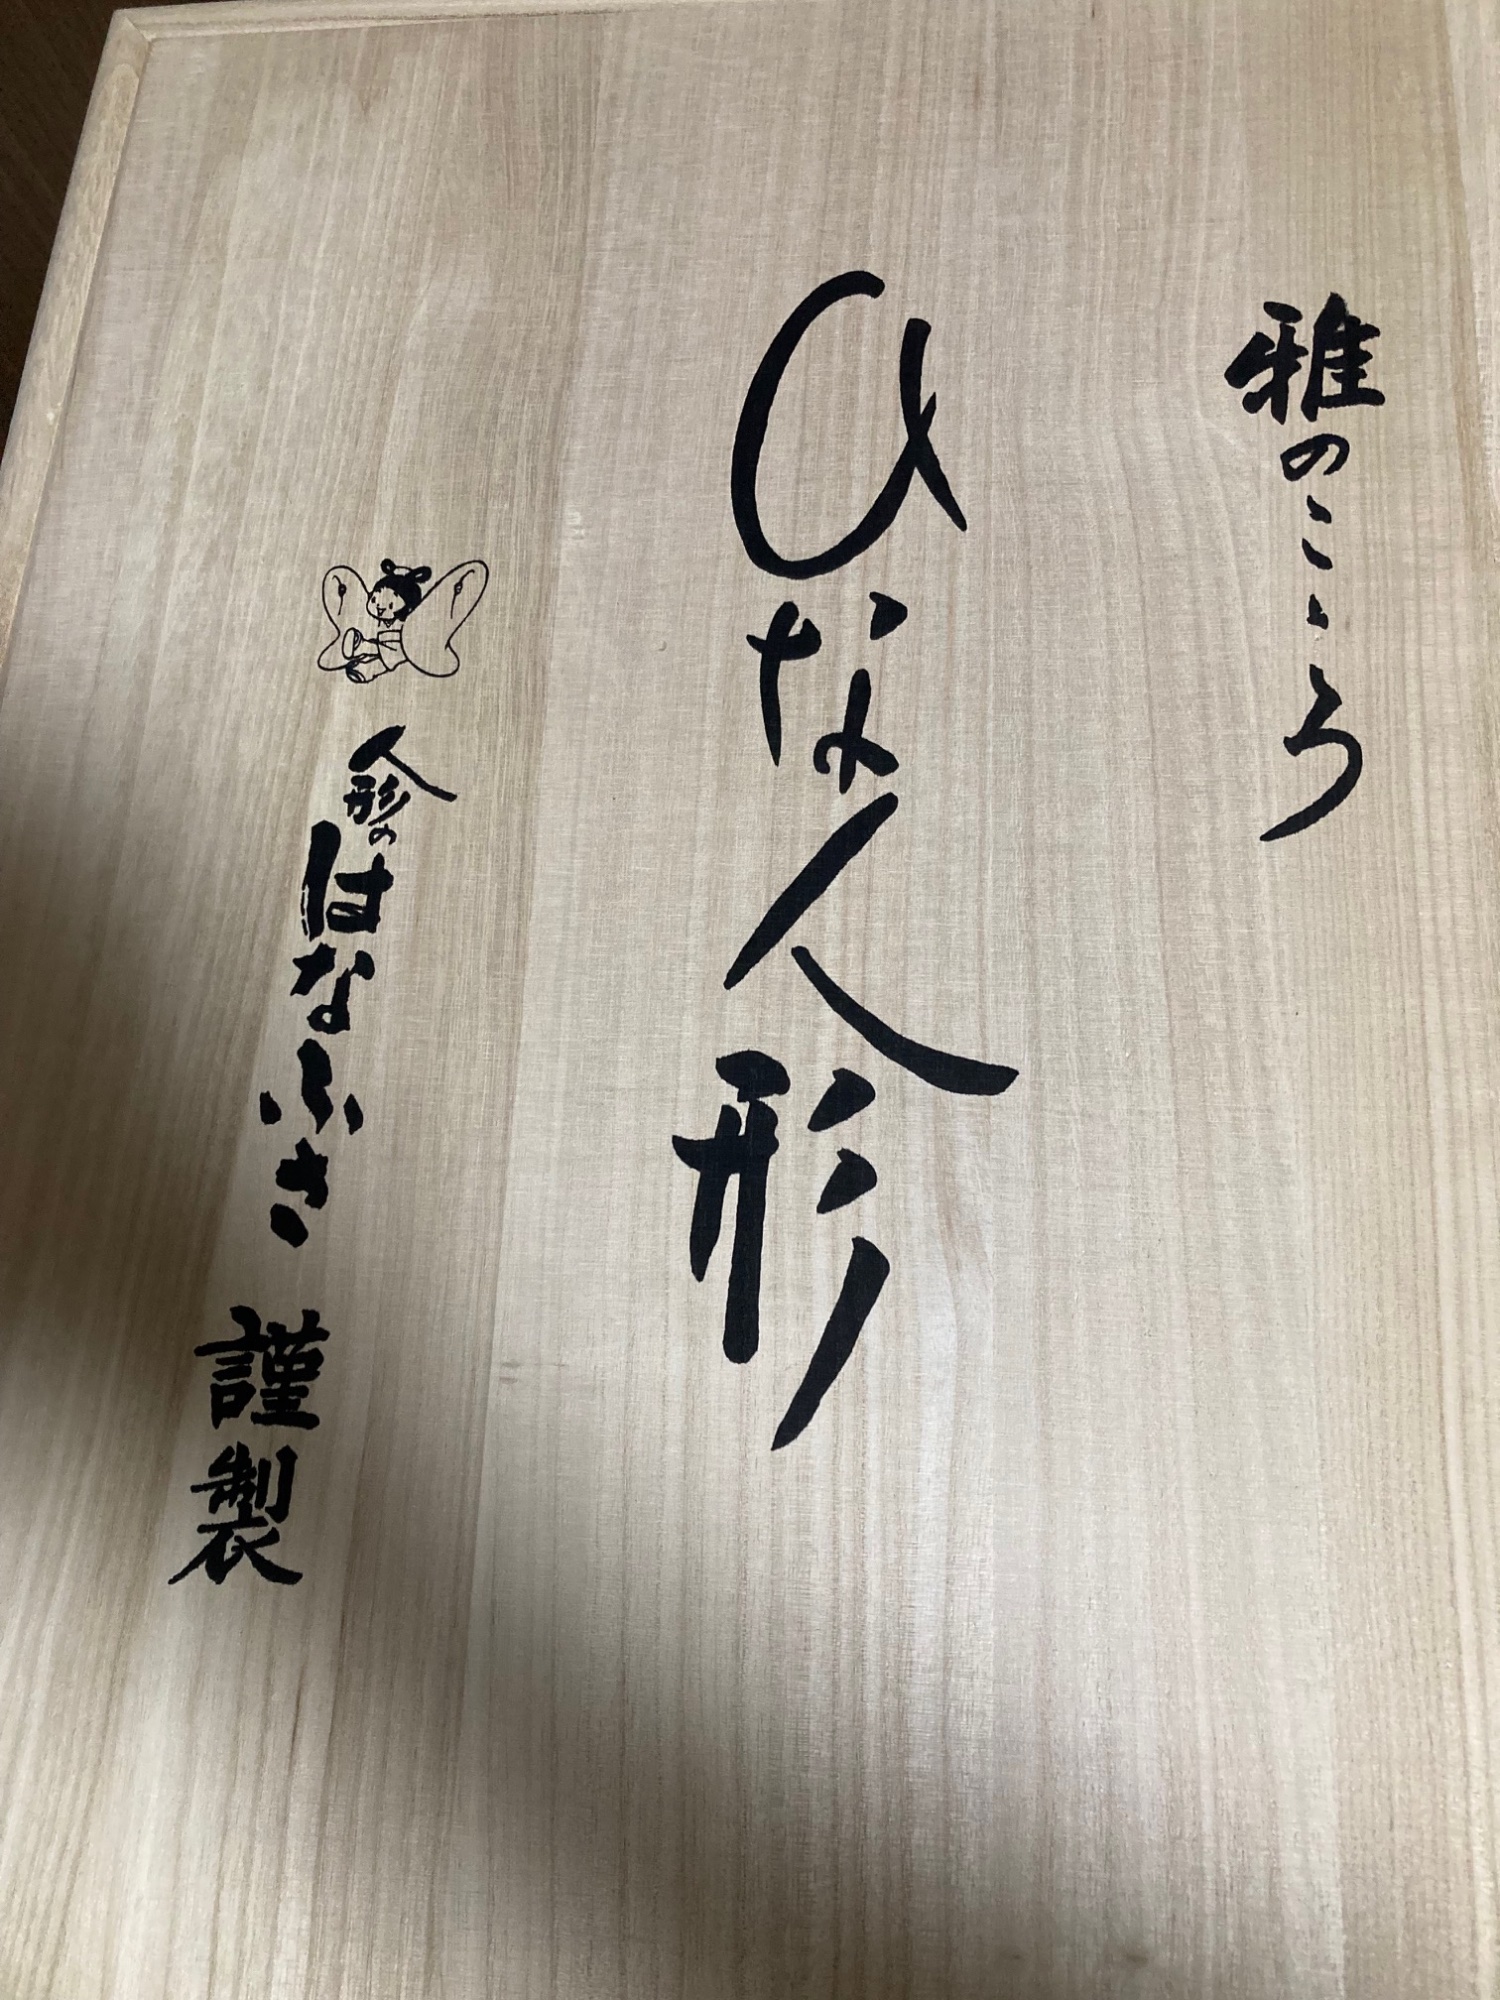 雅のこころ
ひな人形
人形のはなふさ 謹製